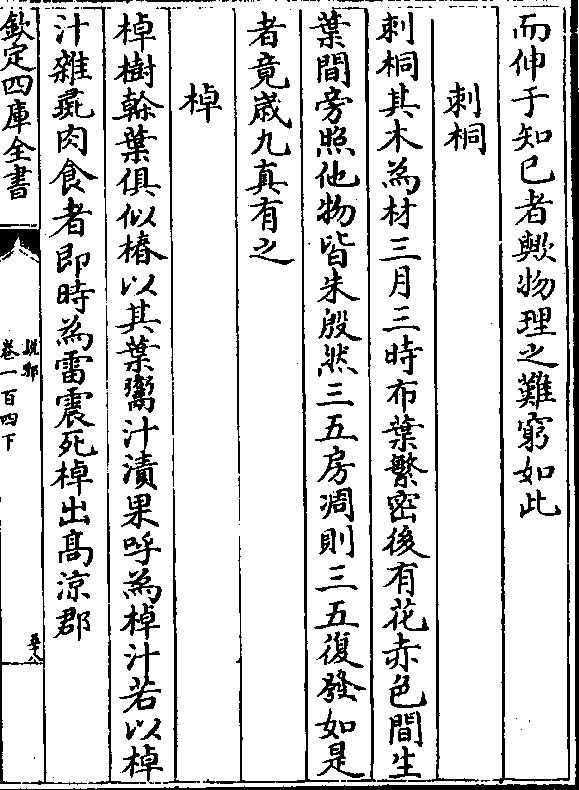 而伸于知已者歟物理之難窮如此
刺桐
刺桐其木為材三月三時布葉繁密後有花赤色間生
葉間旁照他物皆朱殷然三五房凋則三五復發如是
者竟歲九真有之
棹
棹樹榦葉俱似椿以其葉鬻汁漬果呼為棹汁若以棹
汁雜彘肉食者即時為雷震死棹出髙涼郡
欽定四庫全書
說郛
卷一百四下